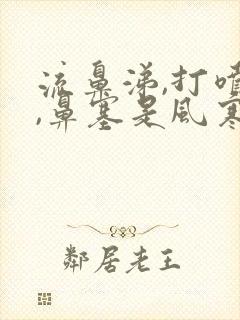 流鼻涕,打嚏
,鼻塞是风寒
鄰居老王